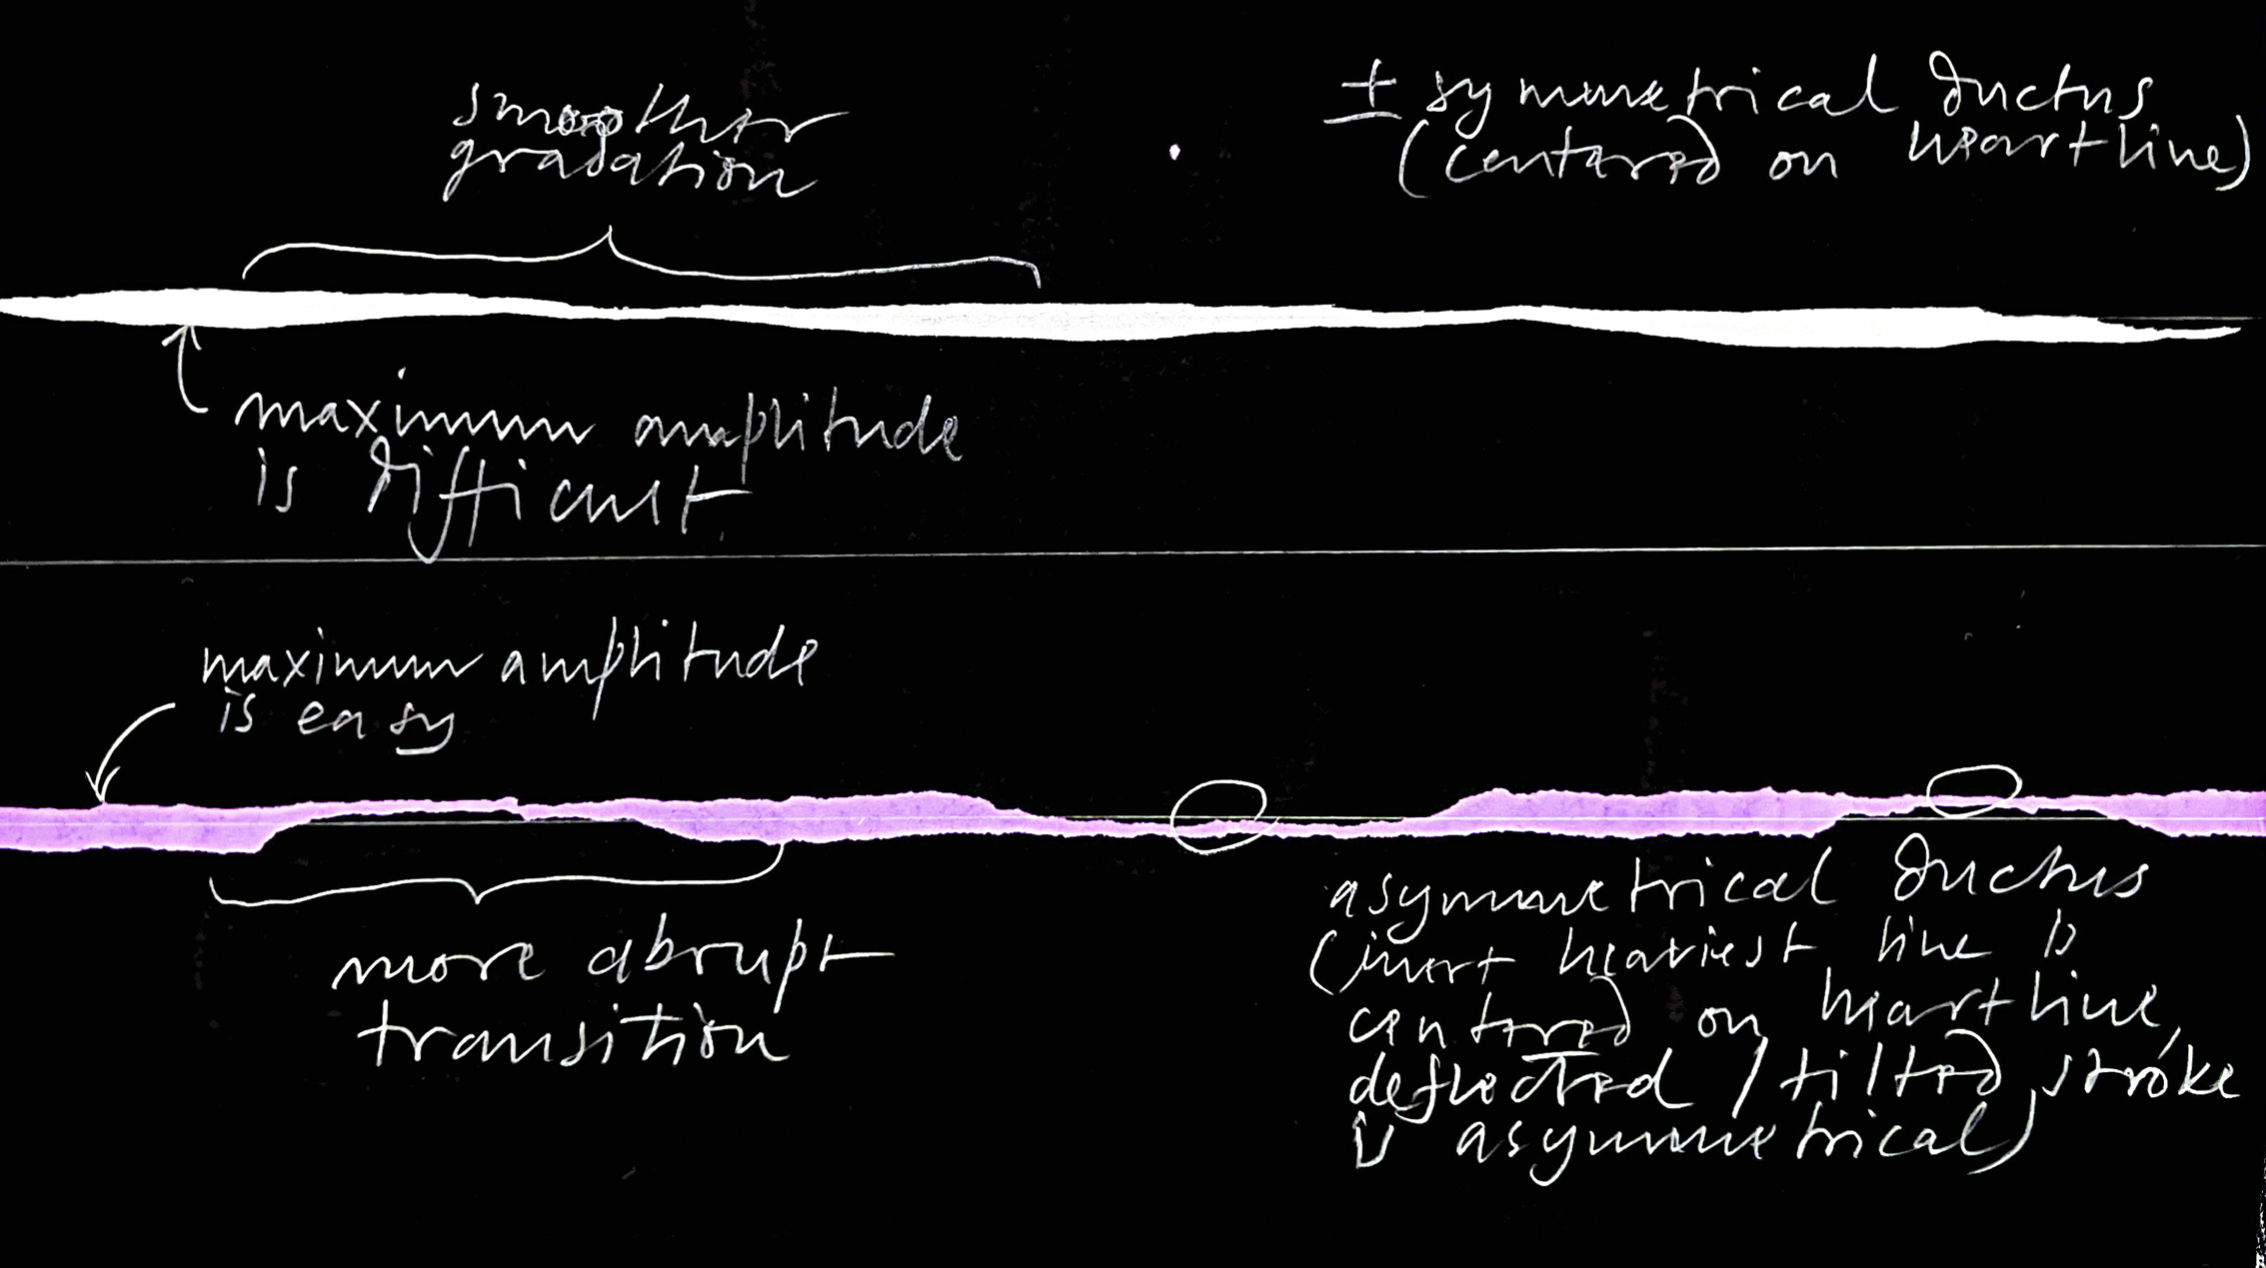 smoother
gradation
± symmetrical ductus
(centered on heartline)
maximum amplitude
is difficult
maximum amplitude
is easy
more abrupt
transition
asymmetrical ductus
(inert heaviest line is
centered on heartline,
deflected / tilted stroke
is asymmetrical)